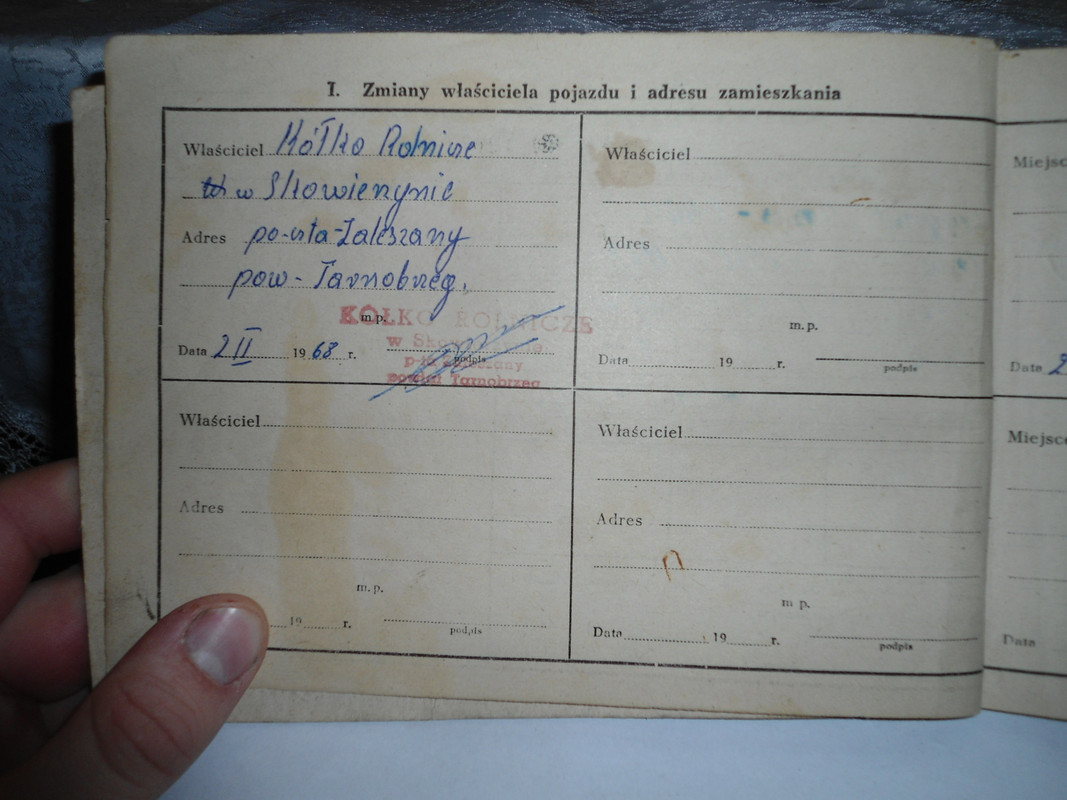 I. Zmiany właściciela pojazdu i adresu zamieszkania
Właściciel Kółko Rolnicze
w Skowierzynie
Adres poczta-Zaleszany
pow-Tarnobrzeg.
m.p.
KÓŁKO ROLNICZE
w
Data 2 II 1968 r.
podpis
powiat Tarnobrzeg
Właściciel
Adres
m.p.
Data 19 r.
podpis
Właściciel
Adres
m.p.
19 r.
podpis
Właściciel
Adres
m p.
Data 19 r.
podpis
Miejsc
Data 2
Miejsc
Data